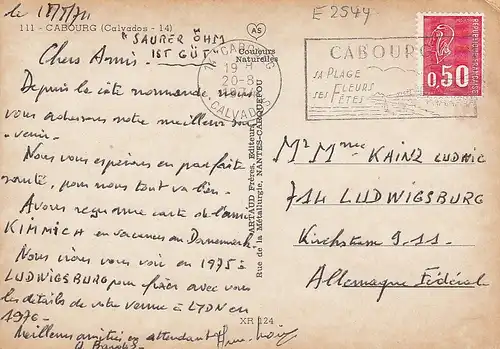 le 18/8/74
E 2544
111 - CABOURG (Calvados - 14)
"SAURER ÖHM
IST GÜT"
Chers Amis -
Depuis la côte normande nous
vous adressons notre meilleur sou
- venir -
Nous vous espérons en parfaite
santé, pour nous tout va bien -
Avons reçu une carte de l'ami
KIMMICH en vacances au Danemark
Nous irons vous voir en 1975 à
LUDWIGSBURG pour fixer avec vous
les détails de votre venue à LYON en
1976 -
Meilleures amitiés en attendant
AS
Couleurs
Naturelles
ARTAUD Frères, Editeurs
Rue de la Métallurgie, NANTES-CARQUEFOU
XR 124
14 CABOURG
19 H
20-8
CALVADOS
CABOURG
SA PLAGE
SES FLEURS
SES FÊTES
0,50
Mr Mme KAINZ LUDWIG
714 LUDWIGSBURG
Allemagne Fédérale